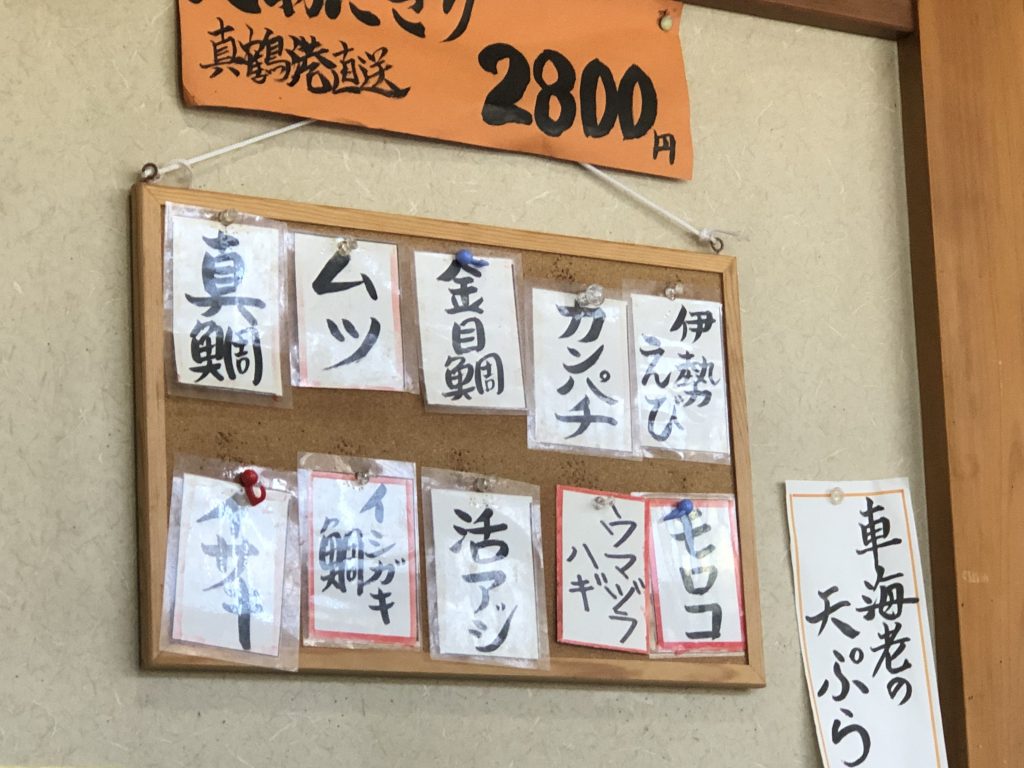 にぎり
真鶴港直送
2800円
真鯛
ムツ
金目鯛
カンパチ
伊勢
えび
イサキ
イシガキ
鯛
活アジ
ウマヅラ
ハギ
モロコ
車海老の
天ぷら